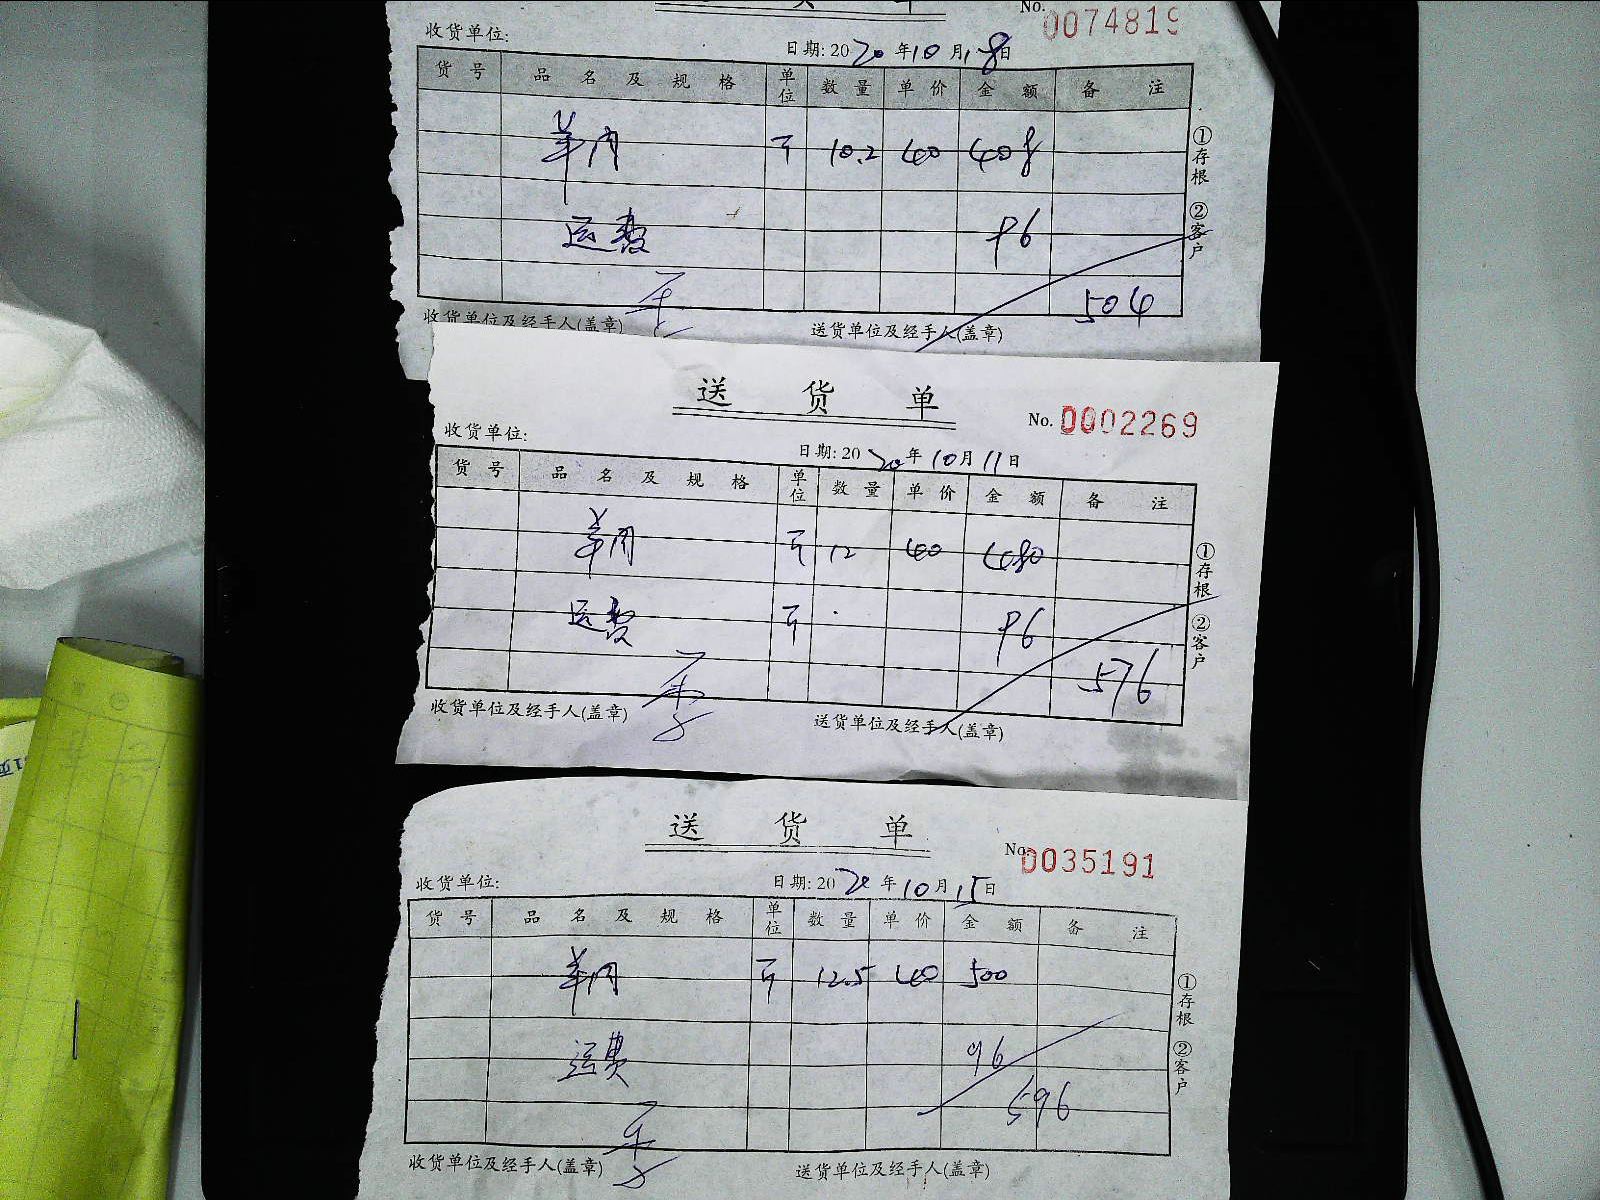 No. 0074819
收货单位: 日期: 2020年10月18日
货号 品名及规格 单位 数量 单价 金额 备注
羊肉 斤 10.2 40 408
运费 96
504
收货单位及经手人(盖章) 送货单位及经手人(盖章)
①存根 ②客户
送货单
No. 0002269
收货单位: 日期: 2020年10月11日
货号 品名及规格 单位 数量 单价 金额 备注
羊肉 斤 12 40 480
运费 斤 96
576
收货单位及经手人(盖章) 送货单位及经手人(盖章)
①存根 ②客户
送货单
No. 0035191
收货单位: 日期: 2020年10月15日
货号 品名及规格 单位 数量 单价 金额 备注
羊肉 斤 12.5 40 500
运费 96
596
收货单位及经手人(盖章) 送货单位及经手人(盖章)
①存根 ②客户